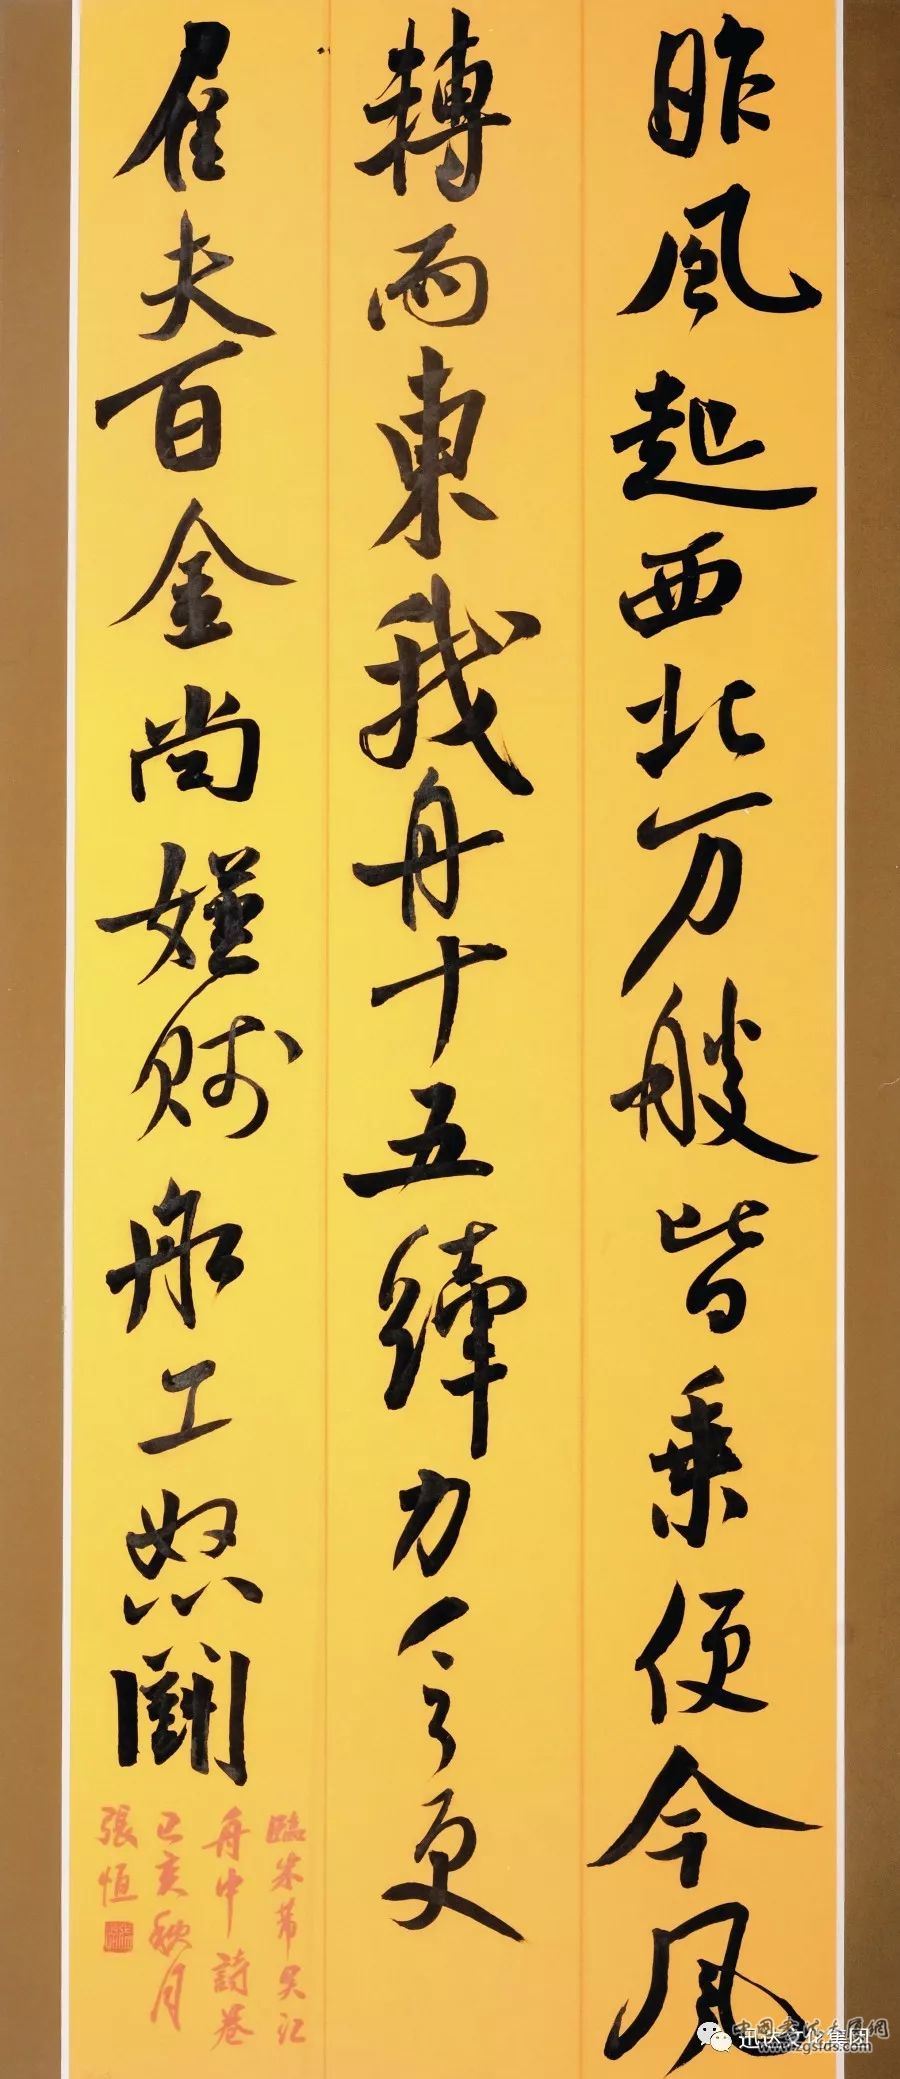 昨風起西北万艘皆乘便今風
轉而東我舟十五縴力乏更
雇夫百金尚嫌賤船工怒鬭
臨米芾吳江
舟中詩卷
己亥秋月
張恒
迅达文化集团
www.zgsfds.com